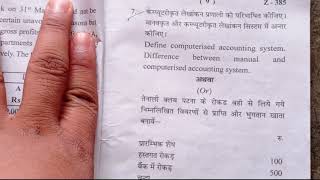 ( 9 )
Z - 385
k on 31st Ma
ed aut be
ertain unavo
asona but
gross profits
partments
vely. The
A
Rs
7. कम्प्यूटरीकृत लेखांकन प्रणाली को परिभाषित कीजिए।
मानवकृत और कम्प्यूटरीकृत लेखांकन सिस्टम में अन्तर
कीजिए।
Define computerised accounting system.
Difference between manual and
computerised accounting system.
अथवा
(Or)
तेनाली क्लब पटना के रोकड़ बही से लिये गये
निम्नलिखित विवरणों से प्राप्ति और भुगतान खाता
बनायें-
रु.
प्रारम्भिक शेष
हस्तगत रोकड़ 100
बैंक में रोकड़ 500
चन्दा